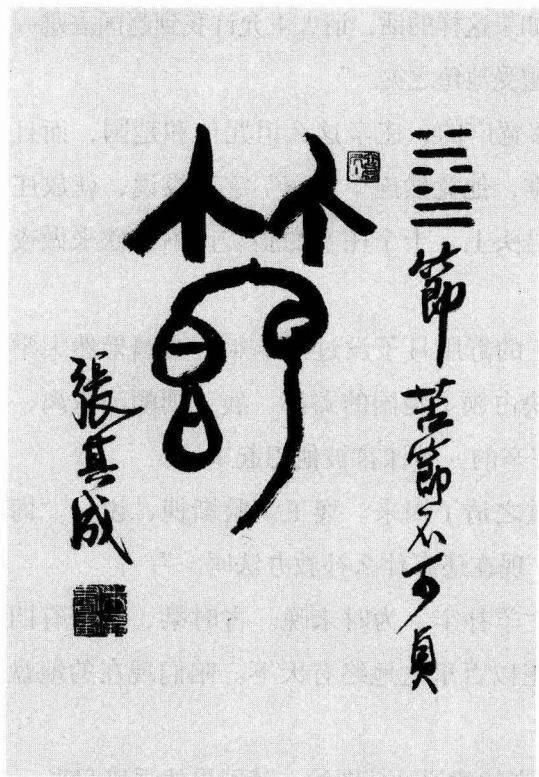 ䷻ 節 苦節不可貞
節
張其成